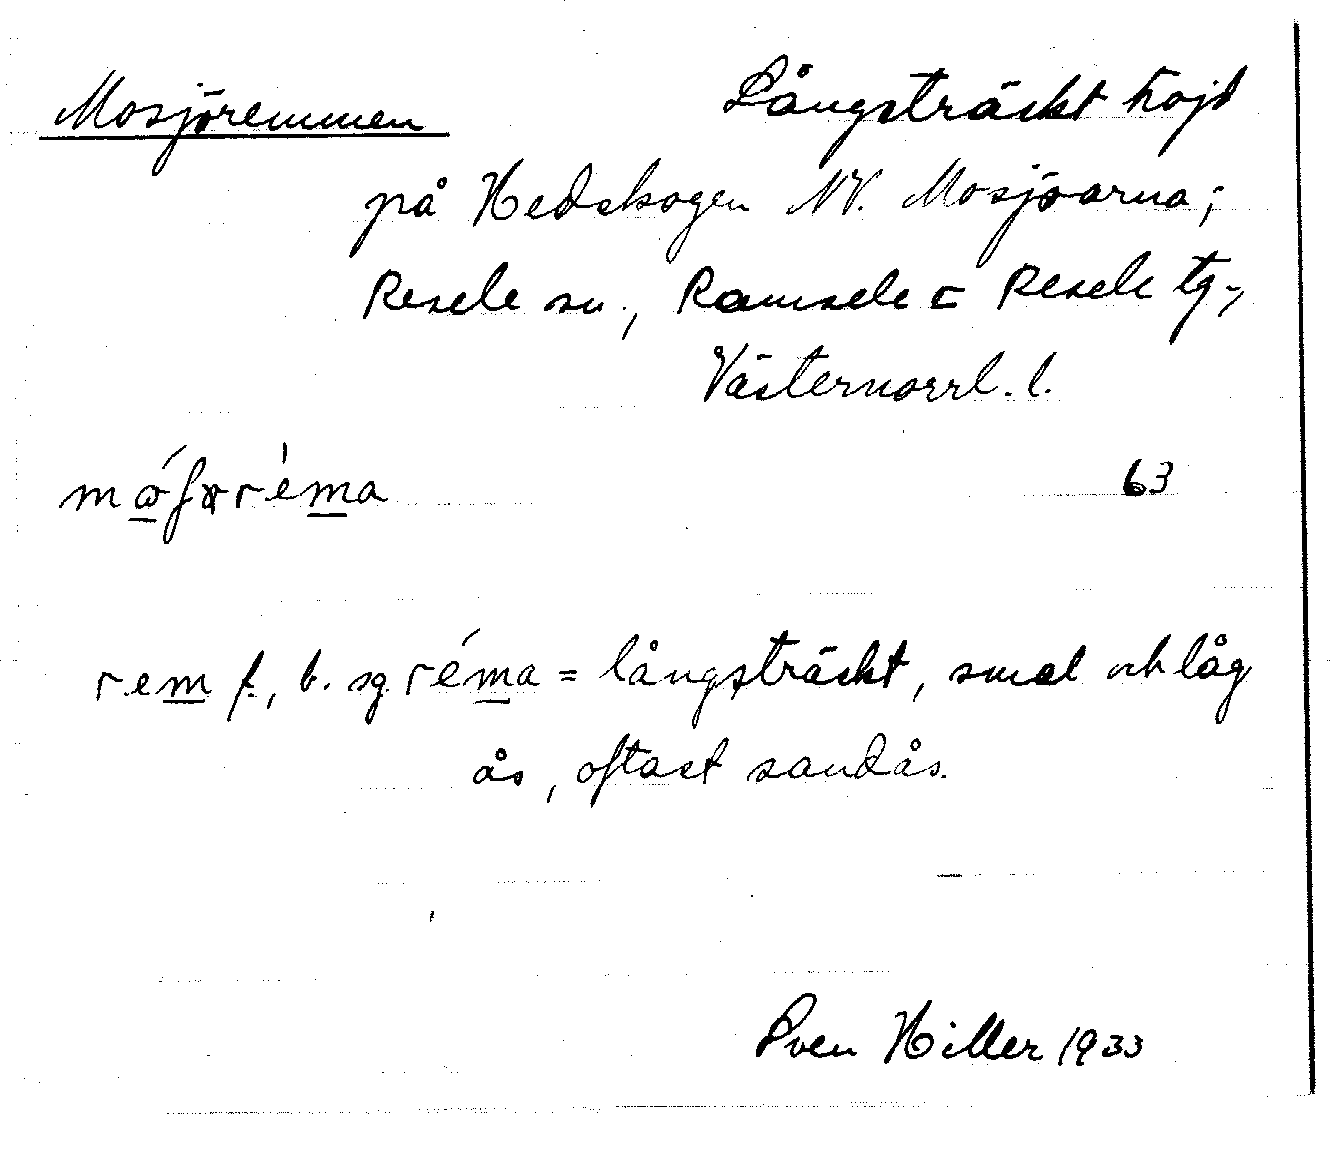 Mosjöremmen Långsträckt höjd
på Hedskogen NV. Mosjöarna;
Resele sn., Ramsele = Resele tg.,
Västernorrl. l.
63
rem f., b. sg. réma = långsträckt, smal och låg
ås, oftast sandås.
Sven Hiller 1933